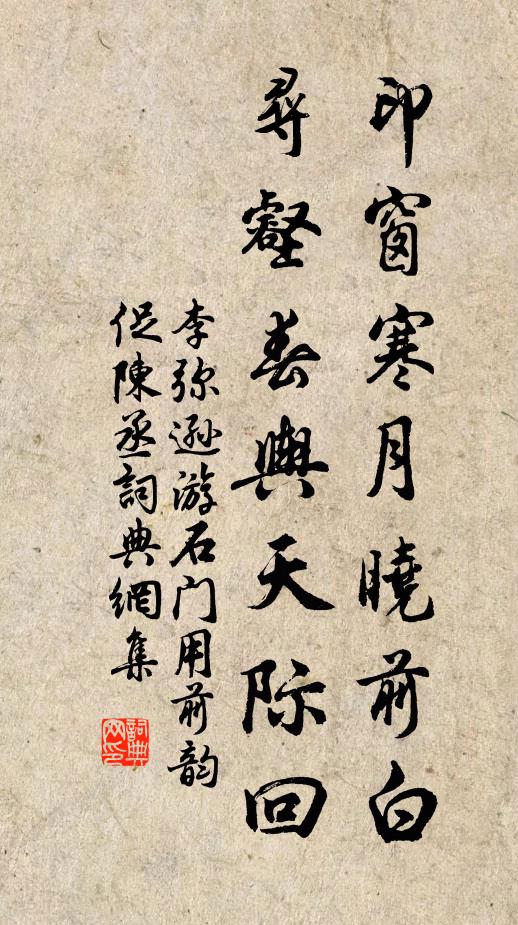 印窗寒月曉前白
尋壑春輿天際回
李弥遜游石门用前韵
促陳丞詞典網集
詞典网印